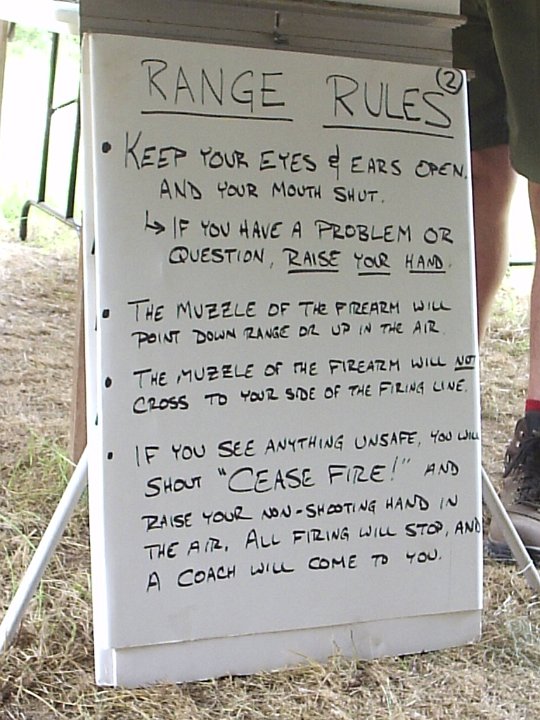 RANGE RULES (2)
• KEEP YOUR EYES & EARS OPEN.
AND YOUR MOUTH SHUT.
↳ IF YOU HAVE A PROBLEM OR
QUESTION, RAISE YOUR HAND.
• THE MUZZLE OF THE FIREARM WILL
POINT DOWN RANGE OR UP IN THE AIR.
• THE MUZZLE OF THE FIREARM WILL NOT
CROSS TO YOUR SIDE OF THE FIRING LINE.
• IF YOU SEE ANYTHING UNSAFE, YOU WILL
SHOUT "CEASE FIRE!" AND
RAISE YOUR NON-SHOOTING HAND IN
THE AIR. ALL FIRING WILL STOP, AND
A COACH WILL COME TO YOU.